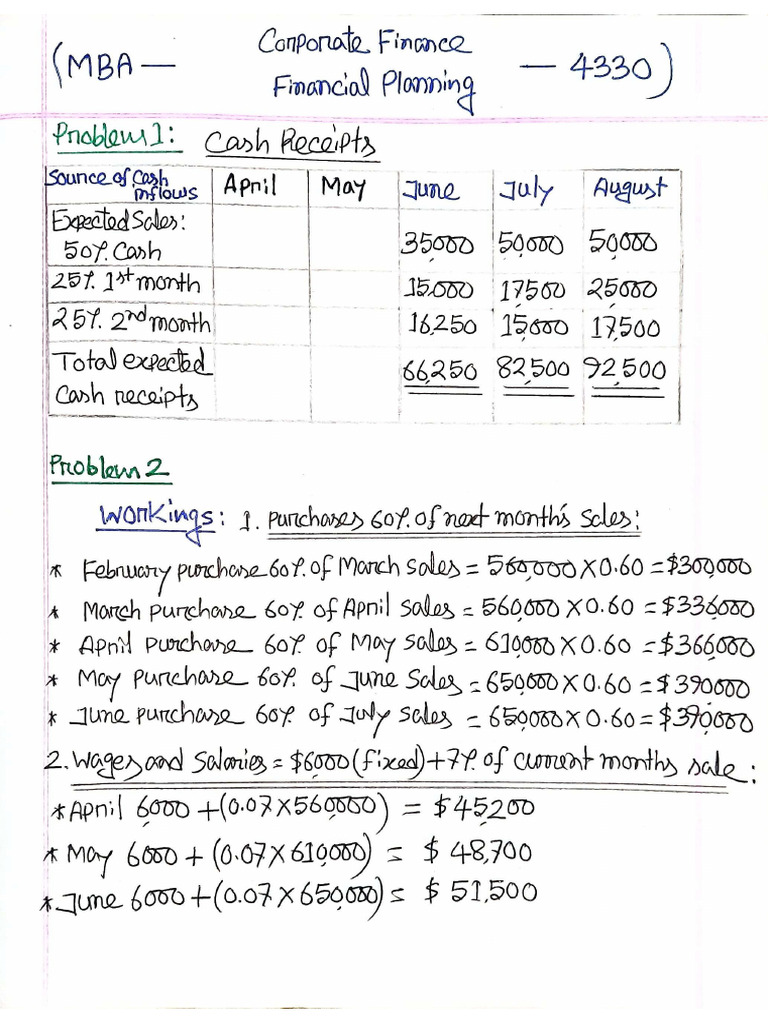 (MBA — Corporate Finance Financial Planning — 4330)
Problem 1: Cash Receipts
Source of Cash inflows April May June July August
Expected Sales:
50% Cash 35,000 50,000 50,000
25% 1st month 15,000 17,500 25,000
25% 2nd month 16,250 15,000 17,500
Total expected 66,250 82,500 92,500
Cash receipts
Problem 2
Workings: 1. Purchases 60% of next month's sales:
* February purchase 60% of March sales = 560,000 X 0.60 = $300,000
* March purchase 60% of April sales = 560,000 X 0.60 = $336,000
* April purchase 60% of May sales = 610,000 X 0.60 = $366,000
* May purchase 60% of June Sales = 650,000 X 0.60 = $390,000
* June purchase 60% of July sales = 650,000 X 0.60 = $390,000
2. Wages and Salaries = $6,000 (fixed) + 7% of current months sale:
* April 6,000 + (0.07 X 560,000) = $45,200
* May 6000 + (0.07 X 610,000) = $ 48,700
* June 6000 + (0.07 X 650,000) = $ 51,500